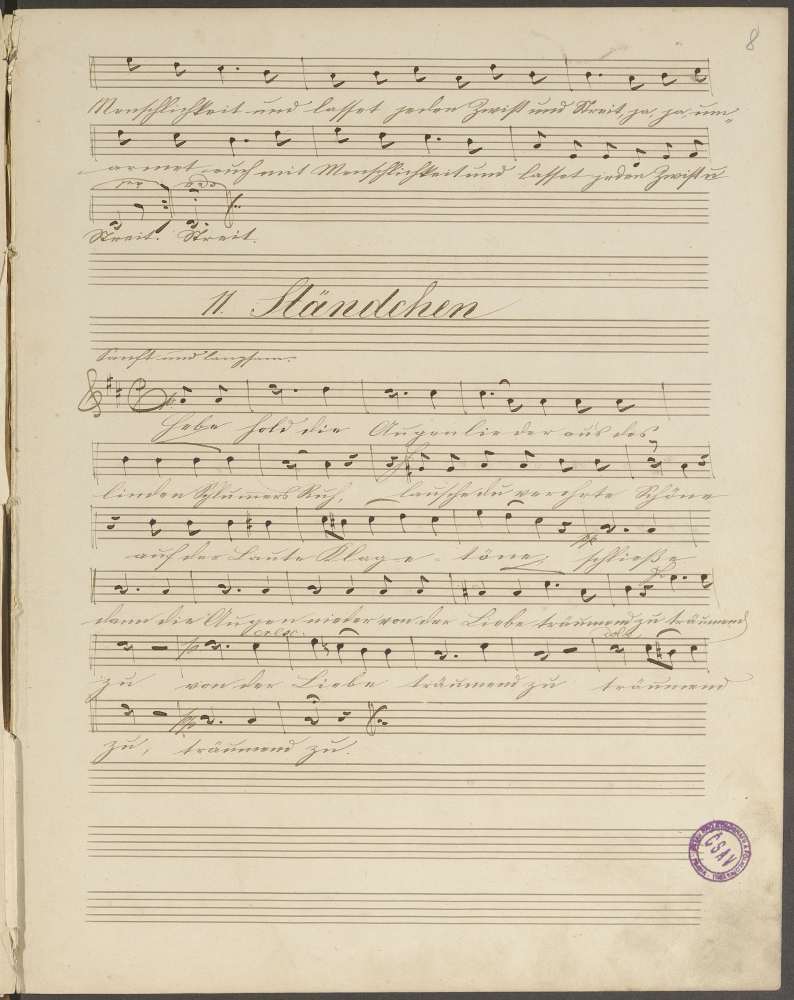 8
Menschlichkeit und lasset jeden Zwist und Streit, ja, ja um„
armet euch mit Menschlichkeit und lasset jeden Zwist u
Streit. Streit.
11. Ständchen
Sanft und langsam.
Hebe hold die Augenlieder aus des
linden Schlumers Ruh, lausche du verehrte Schöne
auf der Laute Klage-töne, schließe
pp
dann die Augen nieder von der Liebe träumend zu träumend
cresc.
zu von der Liebe träumend zu träumend
zu, träumend zu.
ČSAV